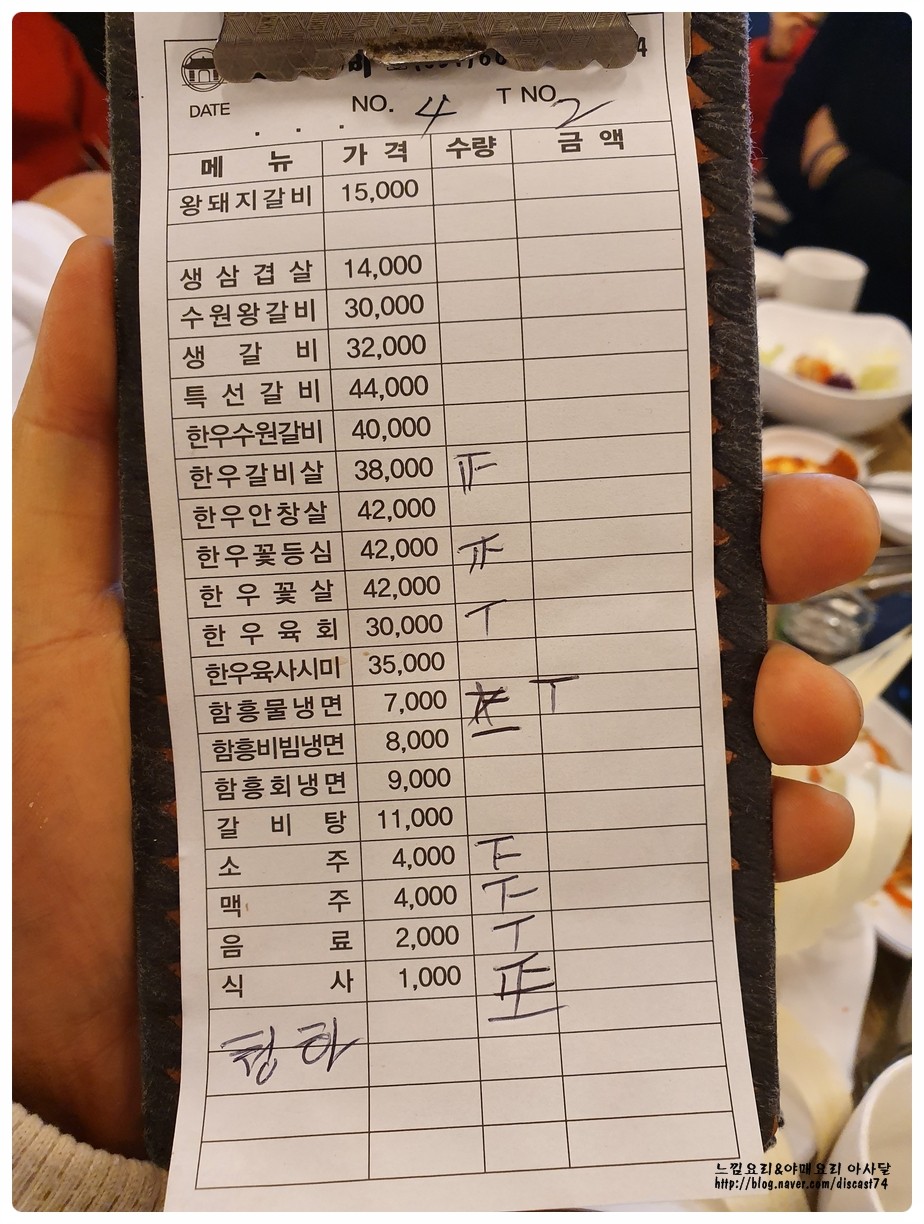 DATE NO. 4 T NO 2
메 뉴 가 격 수량 금 액
왕돼지갈비 15,000
생 삼 겹 살 14,000
수원왕갈비 30,000
생 갈 비 32,000
특 선 갈 비 44,000
한우수원갈비 40,000
한우갈비살 38,000
한우안창살 42,000
한우꽃등심 42,000
한 우 꽃 살 42,000
한 우 육 회 30,000
한우육사시미 35,000
함흥물냉면 7,000
함흥비빔냉면 8,000
함흥회냉면 9,000
갈 비 탕 11,000
소 주 4,000
맥 주 4,000
음 료 2,000
식 사 1,000
청하
느낌요리&야매요리 아사달
http://blog.naver.com/discast74